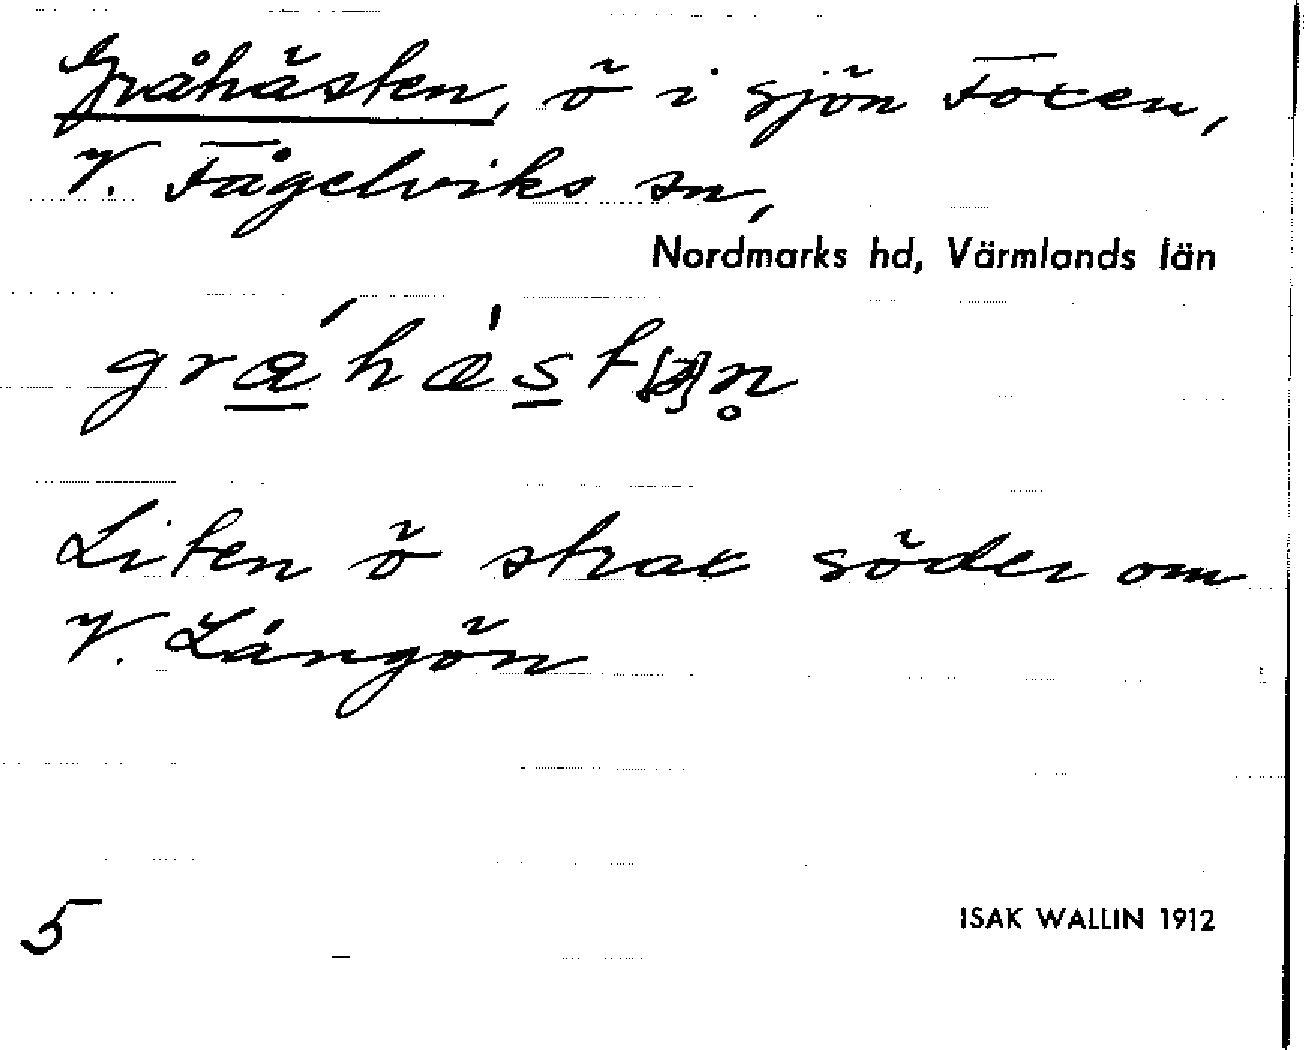 Gråhästen, ö i sjön Foxen,
V. Fågelviks sn,
Nordmarks hd, Värmlands län
Liten ö strax söder om
V. Långön
5
ISAK WALLIN 1912